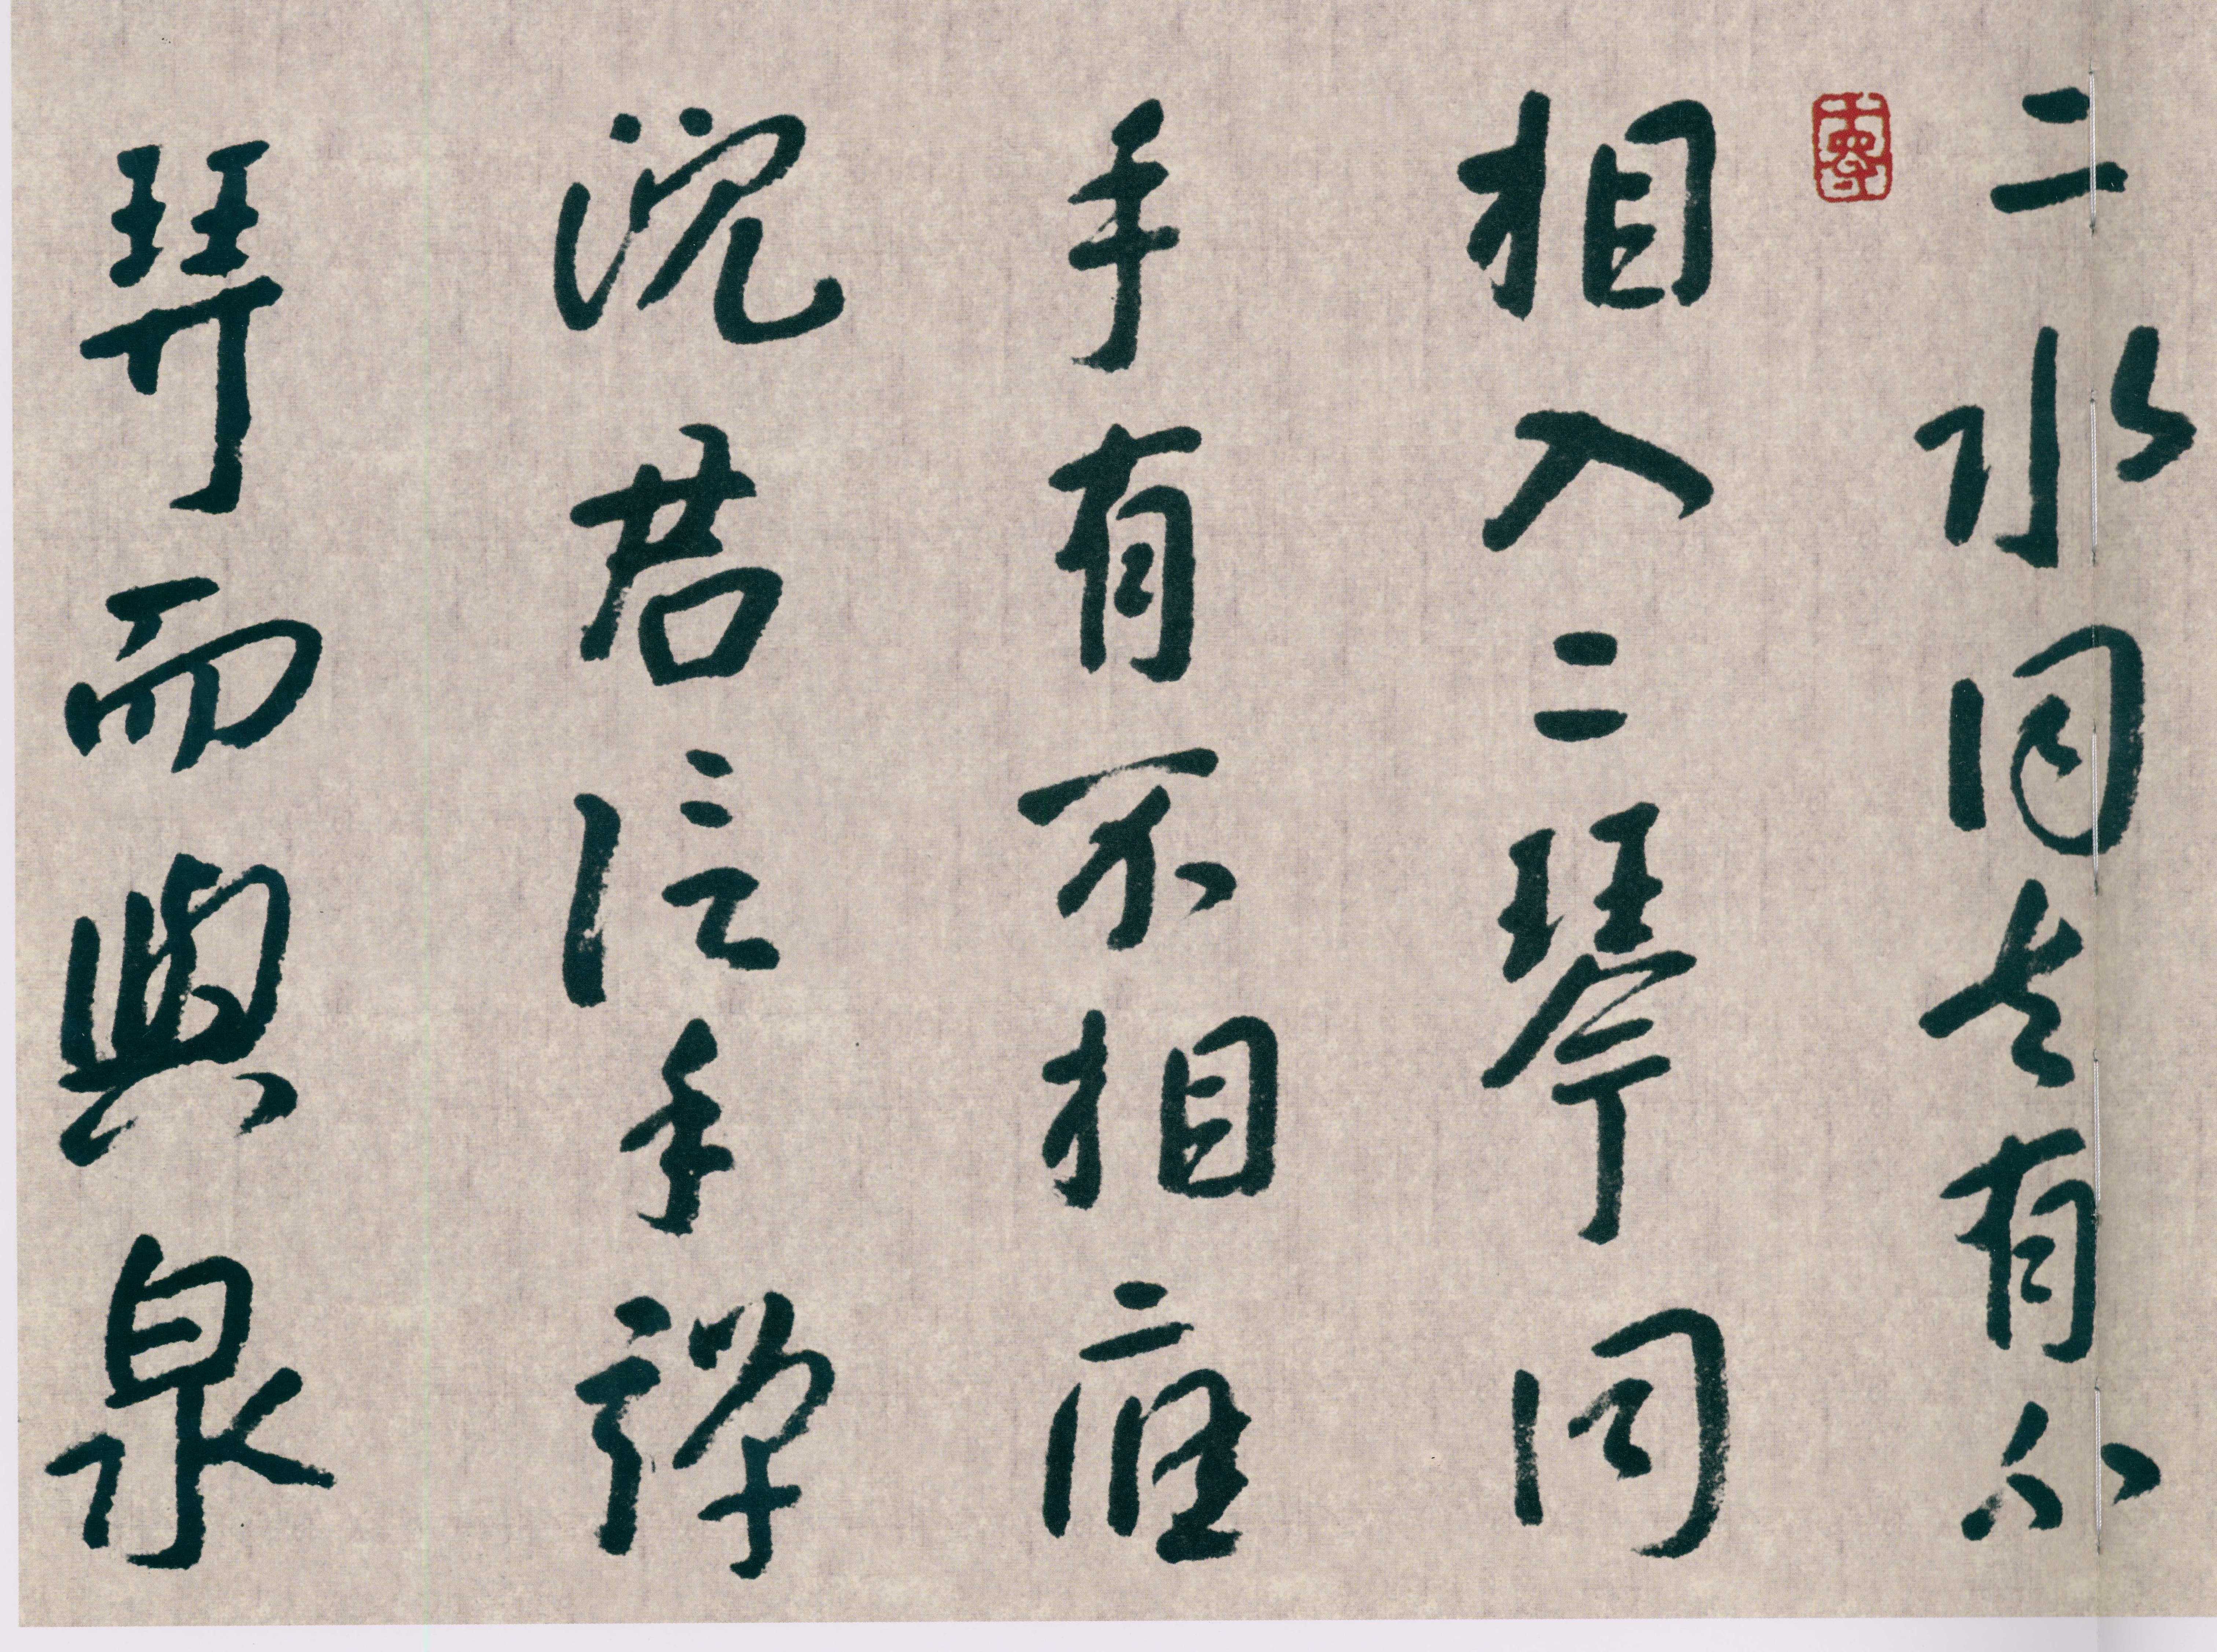 二水同器有不
相入二琴同
手有不相應
沈君信手彈
琴而與泉